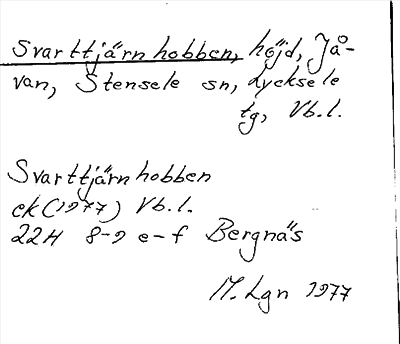 Svarttjärnhobben, höjd, Jå-
van, Stensele sn, Lycksele
tg, Vb.l.
Svarttjärnhobben
ek (1977) Vb.l.
22H 8-9 e-f Bergnäs
M. Lgn 1977